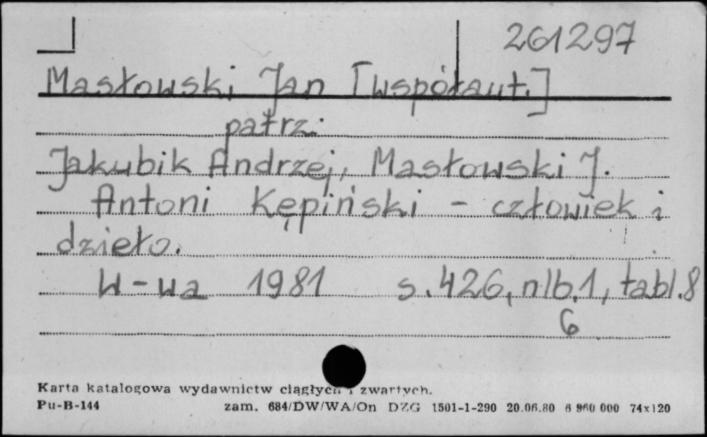 261297
Masłowski Jan [współaut.]
patrz:
Jakubik Andrzej, Masłowski J.
Antoni Kępiński - człowiek i
dzieło.
W-wa 1981 s. 426, nlb. 1, tabl. 8
6
Karta katalogowa wydawnictw ciągłych i zwartych.
Pu-B-144 zam. 684/DW/WA/On DZG 1501-1-290 20.06.80 6 960 000 74x120